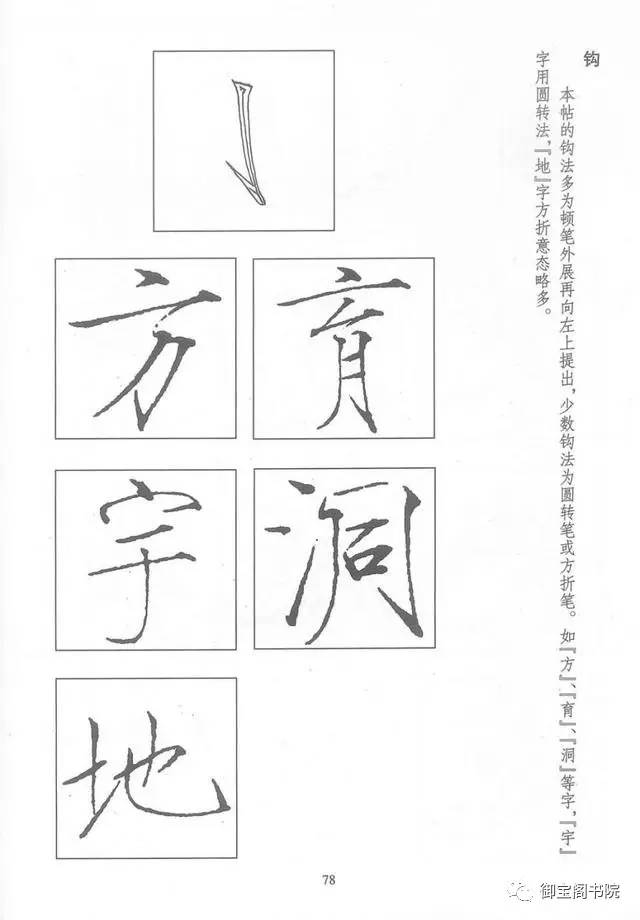 钩
本帖的钩法多为顿笔外展再向左上提出，少数钩法为圆转笔或方折笔。如『方』、『育』、『洞』等字，『宇』
字用圆转法，『地』字方折意态略多。
亅
方 育
宇 洞
地
78
御宝阁书院